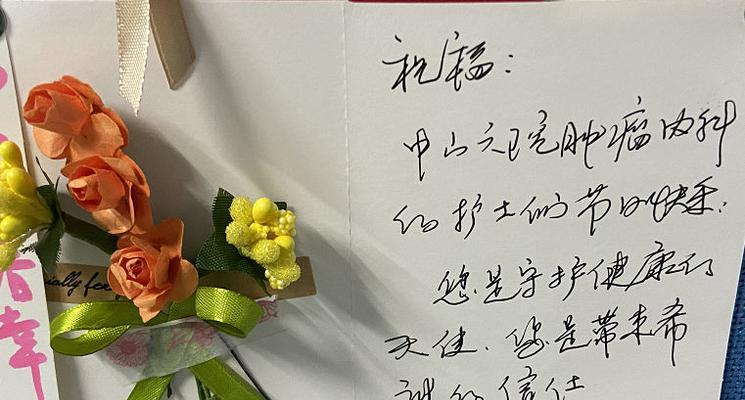 祝福:
中山六院肿瘤内科
的护士们节日快乐.
您是守护健康的
天使.您是带来希
ially for
幸